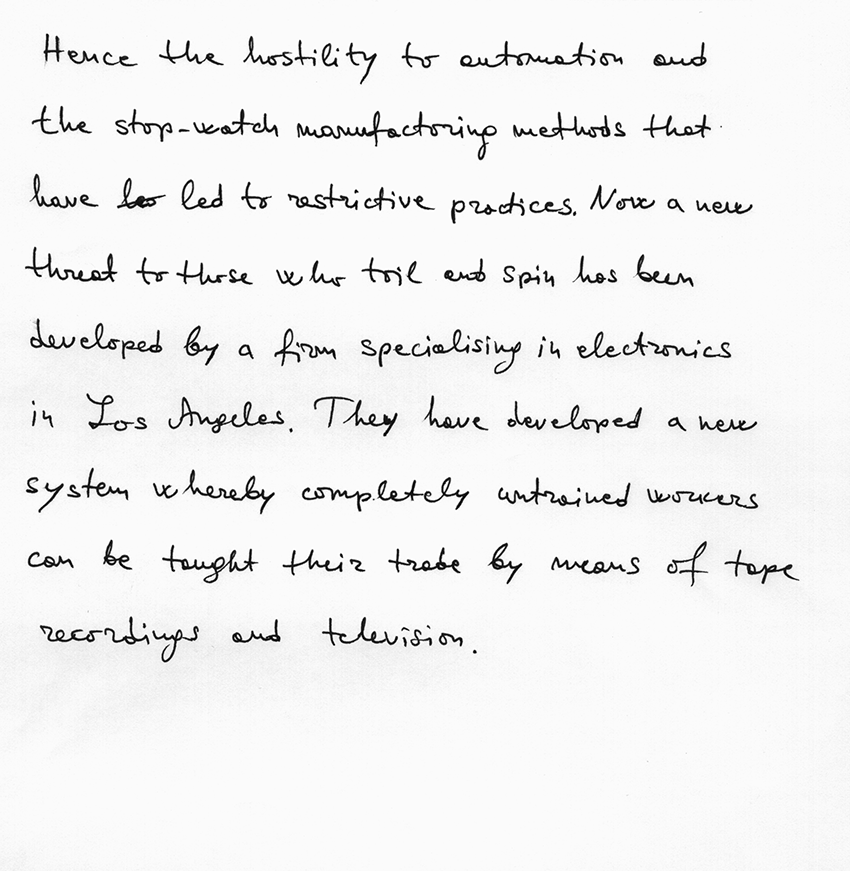 Hence the hostility to automation and
the stop-watch manufactoring methods that
have led to restrictive practices. Now a new
threat to those who toil and spin has been
developed by a firm specialising in electronics
in Los Angeles. They have developed a new
system whereby completely untrained workers
can be taught their trade by means of tape
recordings and television.